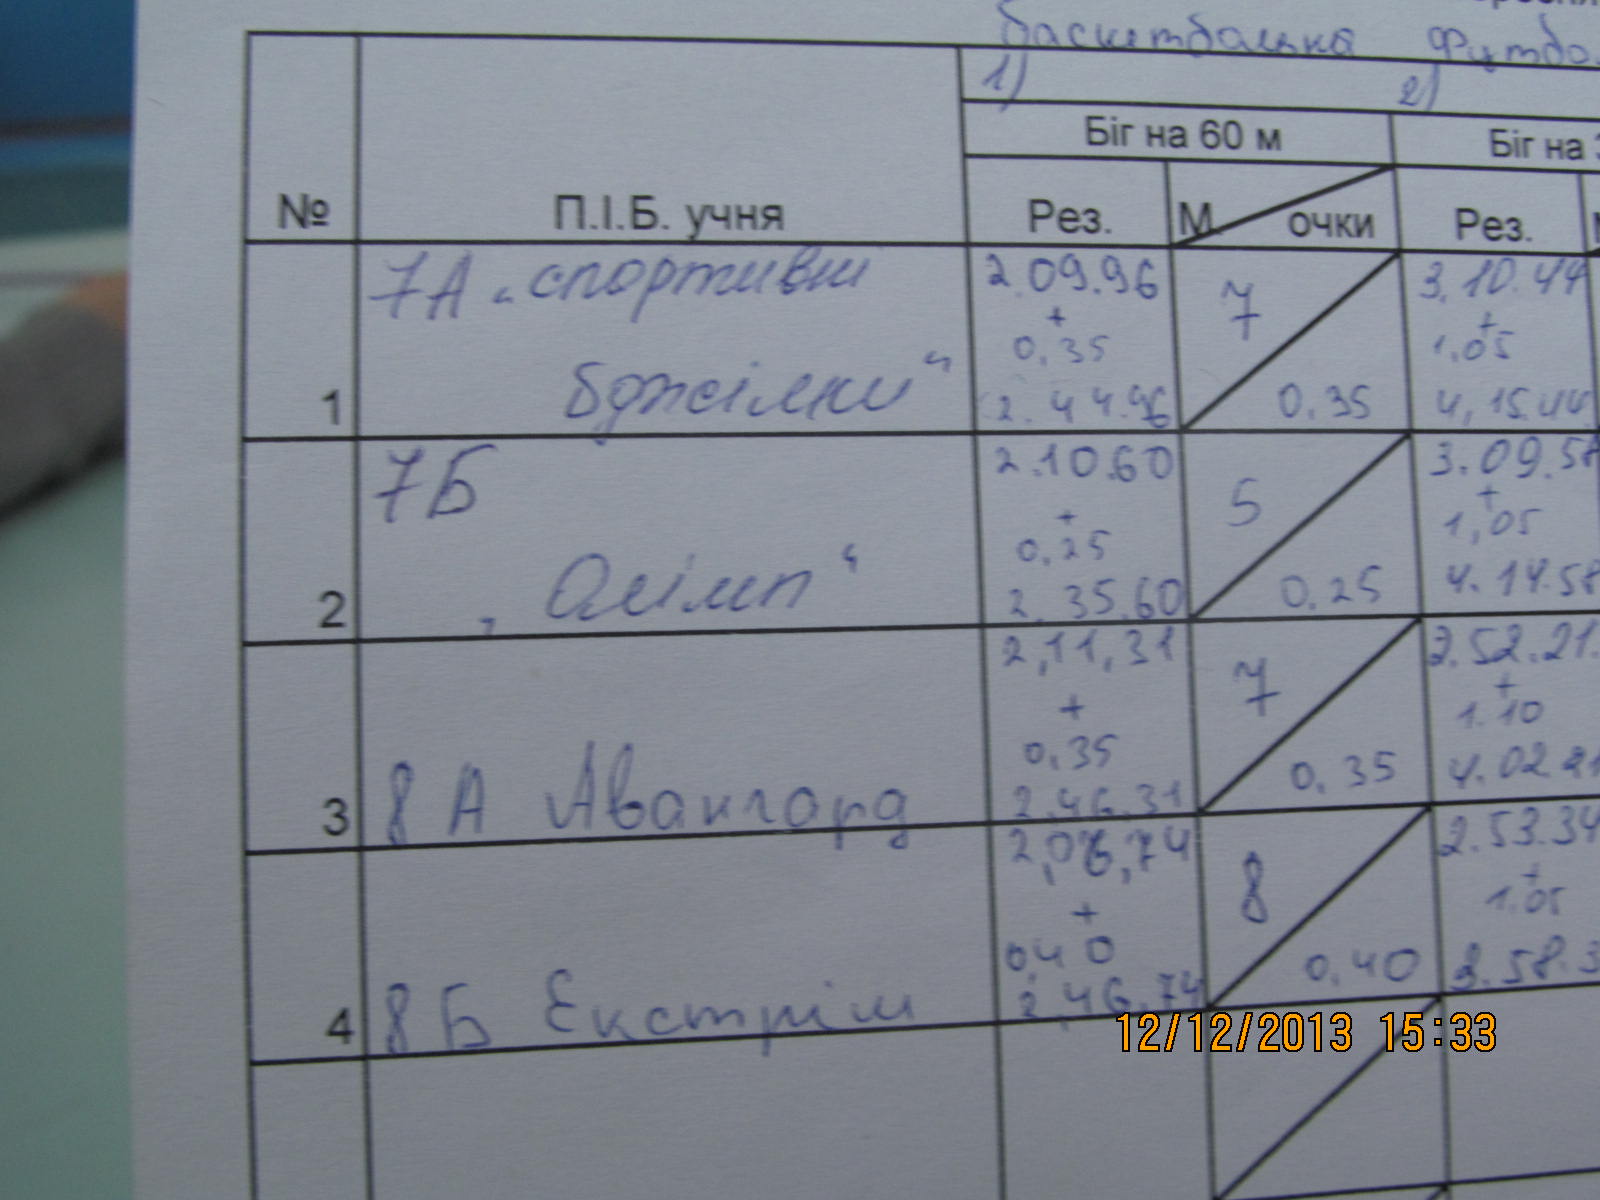 Баскетбольна Футбо
1) 2)
Біг на 60 м Біг на 3
№ П.І.Б. учня Рез. М очки Рез.
7А „спортивні 2.09.96 7 3.10.44
+ +
0,35 1,05
1 бджілки“ 2.44.96 0,35 4,15.44
7Б 2.10.60 5 3.09.58
+ +
0,25 1,05
2 „Олімп“ 2.35.60 0.25 4.14.58
2,11,31 7 2.52.21.
+ +
0,35 1.10
3 8 А Авангард 2.46.31 0,35 4.02.21
2,06,74 8 2.53.34
+ +
0,40 1.05
4 8 Б Екстрім 2,46.74 0,40 3.58.3
12/12/2013 15:33